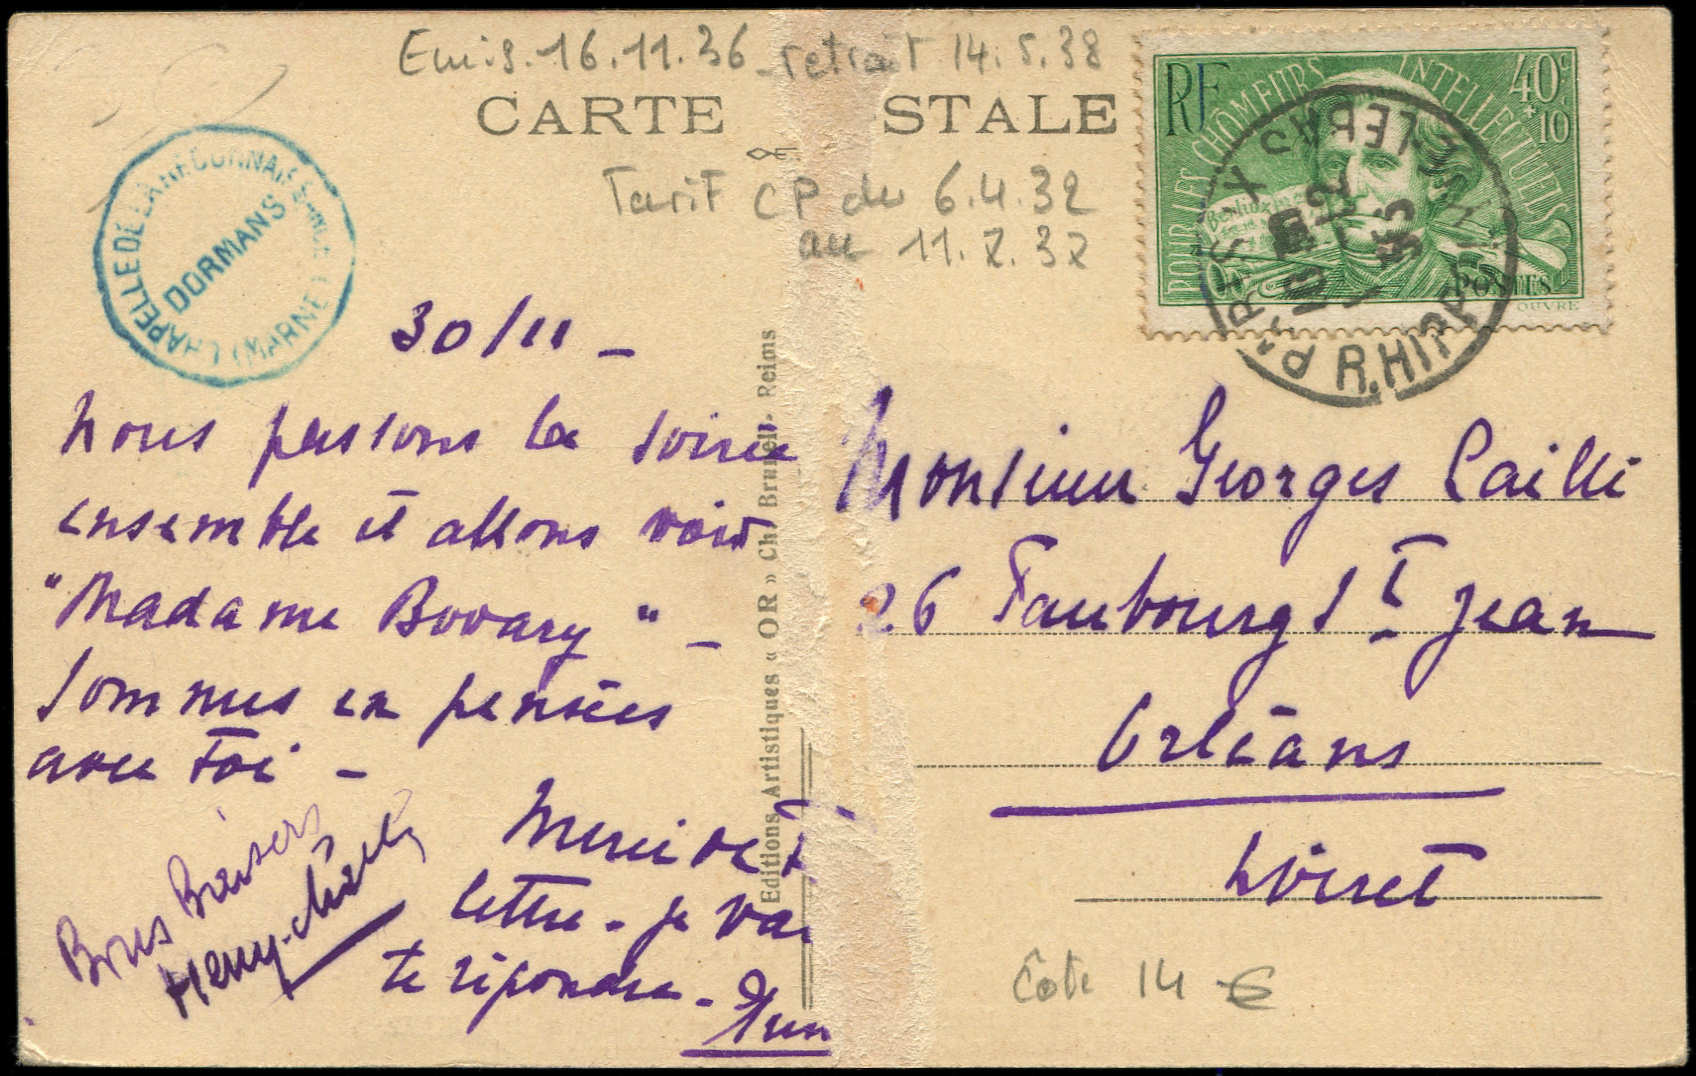 Emis. 16.11.36 - retrait 14.5.38
CARTE STALE
Tarif CP du 6.4.32
au 11.7.37
CHAPELLE DE LA RECONNAISSANCE
DORMANS
(MARNE)
RF
POUR LES CHOMEURS INTELLECTUELS
40c
+10
Berlioz
POSTES
OUVRE
PARIS X
R. HIPPOLYTE LEBAS
30/11 -
Nous passons la soirée
ensemble et allons voir
"Madame Bovary" -
Sommes en pensées
avec toi -
Merci de t
lettre - je vai
te répondre -
Bons Baisers
Henry-
Editions Artistiques « OR » Ch. Brunel - Reims
Monsieur Georges Caillé
26 Faubourg St Jean
Orléans
Loiret
Cote 14 €